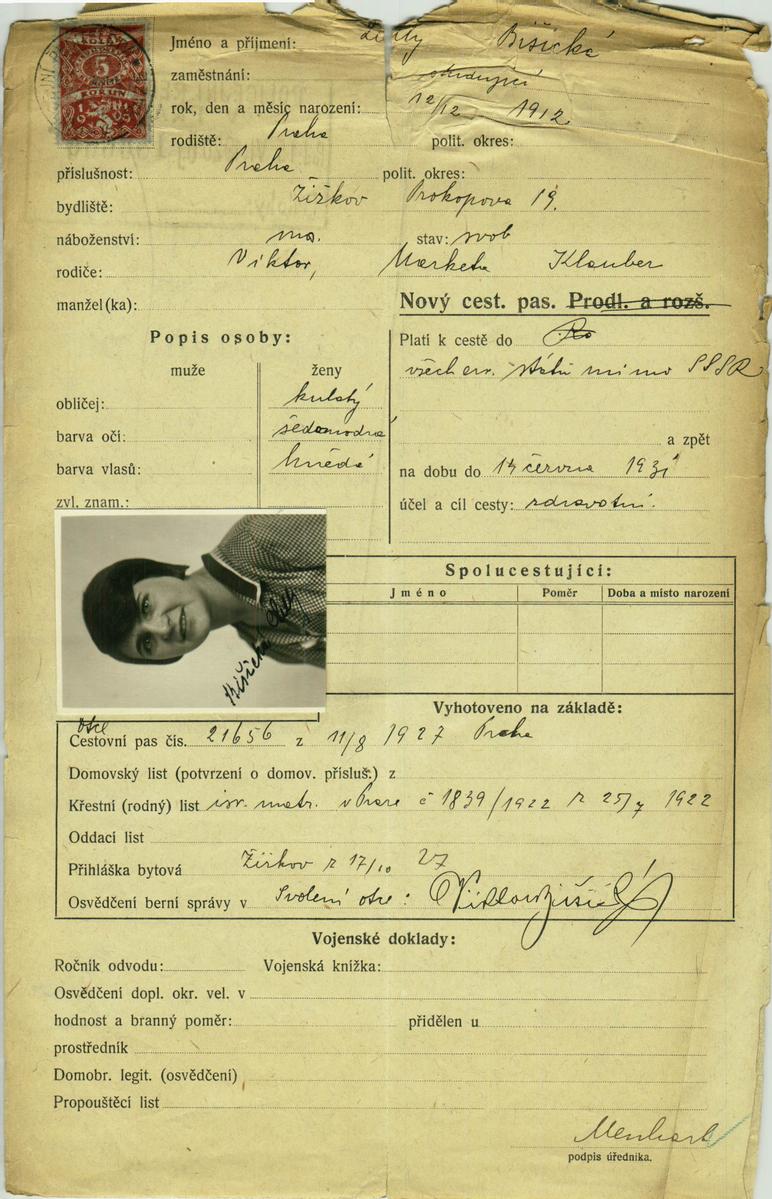 5
KORUN
Jméno a příjmení: Bišická
zaměstnání: studující
rok, den a měsíc narození: 12/12 1912
rodiště: Praha polit. okres:
příslušnost: Praha polit. okres:
bydliště: Žižkov Prokopova 19.
náboženství: stav: svob
rodiče: Viktor, Marketa Klauber
manžel(ka):
Nový cest. pas. Prodl. a rozš.
Popis osoby:
muže ženy
obličej: kulatý
barva očí: šedomodrá
barva vlasů: hnědá
zvl. znam.:
Platí k cestě do
všech ev. států mimo SSSR
a zpět
na dobu do 14 června 1931
účel a cíl cesty: zdravotní.
Bišická
Spolucestující:
Jméno Poměr Doba a místo narození
Vyhotoveno na základě:
Cestovní pas čís. 21656 z 11/8 1927 Praha
Domovský list (potvrzení o domov. přísluš.) z
Křestní (rodný) list isr. matr. v Praze č 1839/1922 z 25/7 1922
Oddací list
Přihláška bytová Žižkov z 17/10 27
Osvědčení berní správy v Svolení otce:
Vojenské doklady:
Ročník odvodu: Vojenská knížka:
Osvědčení dopl. okr. vel. v
hodnost a branný poměr: přidělen u
prostředník
Domobr. legit. (osvědčení)
Propouštěcí list
Menhart
podpis úředníka.